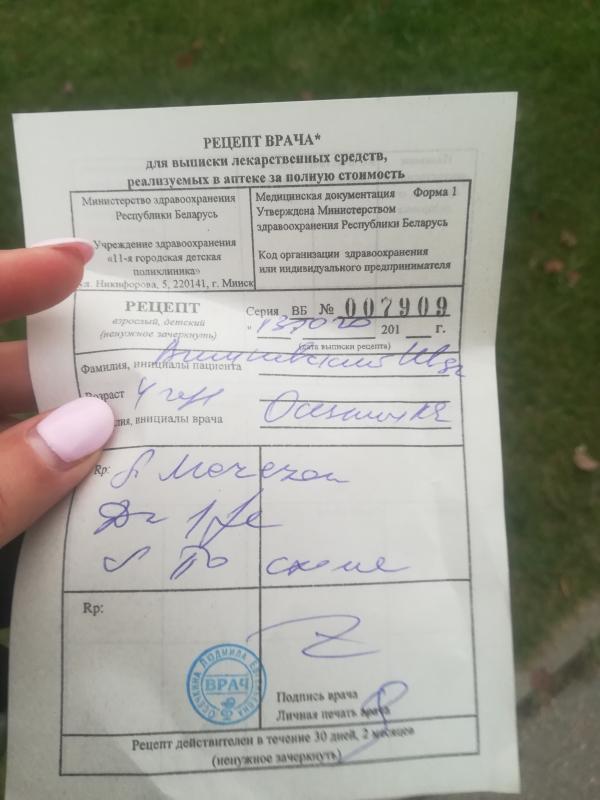 РЕЦЕПТ ВРАЧА*
для выписки лекарственных средств,
реализуемых в аптеке за полную стоимость
Министерство здравоохранения
Республики Беларусь
Учреждение здравоохранения
«11-я городская детская
поликлиника»
ул. Никифорова, 5, 220141, г. Минск
Медицинская документация Форма 1
Утверждена Министерством
здравоохранения Республики Беларусь
Код организации здравоохранения
или индивидуального предпринимателя
РЕЦЕПТ
взрослый, детский
(ненужное зачеркнуть)
Серия ВБ № 007909
" 201 г.
(дата выписки рецепта)
Фамилия, инициалы пациента
Возраст
инициалы врача
Rp:
По схеме
Rp:
ЛЮДМИЛА
ВРАЧ
Подпись врача
Личная печать врача
Рецепт действителен в течение 30 дней, 2 месяцев
(ненужное зачеркнуть)